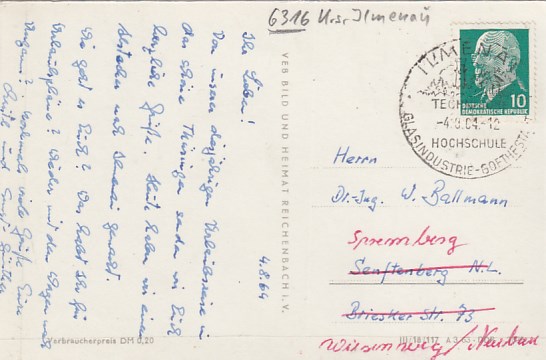 6316 Krs. Ilmenau
4.8.64
Ihr Lieben!
Von unserer diesjährigen Urlaubsreise in
das schöne Thüringen senden wir Euch
herzliche Grüße. Heute haben wir einen
Abstecher nach gemacht.
Wie geht es Euch? Was habt Ihr für
Urlaubspläne? Wieder mit dem Wagen nach
Ungarn? Nochmals viele Grüße Eure
und
VEB BILD UND HEIMAT REICHENBACH I. V.
Verbraucherpreis DM 0,20
ILMENAU
TECHN.
HOCHSCHULE
GLASINDUSTRIE-GOETHEST
-4.8.64.-12
DEUTSCHE
DEMOKRATISCHE REPUBLIK
10
Herrn
Dr.-Jng. W. Ballmann
Spremberg
Senftenberg N.L.
Briesker Str. 73
Wiesenweg / Neubau
III/18/117